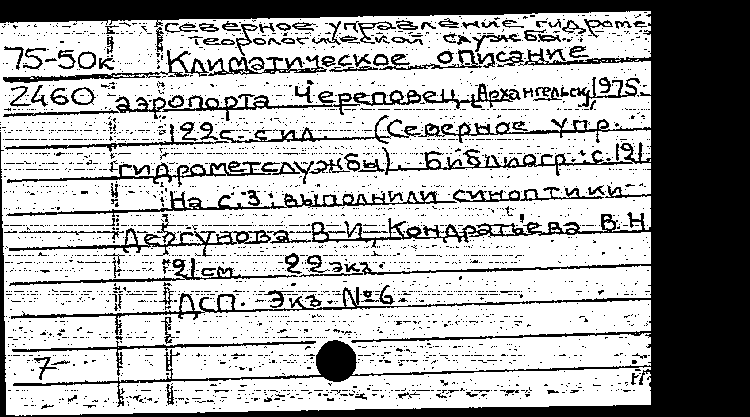 Северное управление гидроме-
теорологической службы.
75-50к Климатическое описание
2460 аэропорта Череповец, Архангельск, 1975.
122с. с ил. (Северное упр.
гидрометслужбы). Библиогр.: с. 121.
На с. 3: выполнили синоптики
Дергунова В.И., Кондратьева В.Н.
21см. 22 экз.
ДСП. Экз. №6.
7